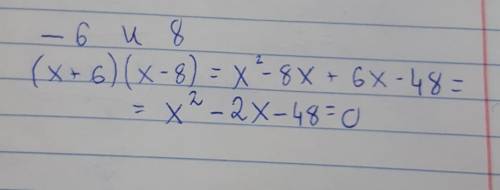 - 6 и 8
(x+6)(x-8) = x²-8x + 6x-48 =
= x²-2x-48=0